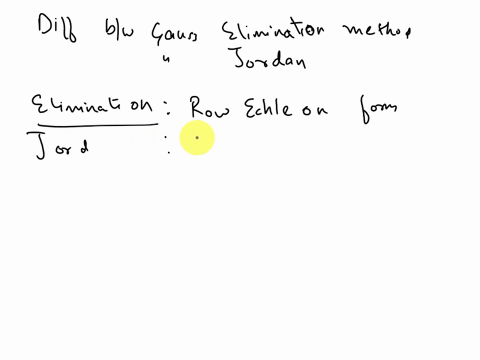 Diff b/w Gauss Elimination method
" Jordan
Elimination : Row Echle on form
Jord :